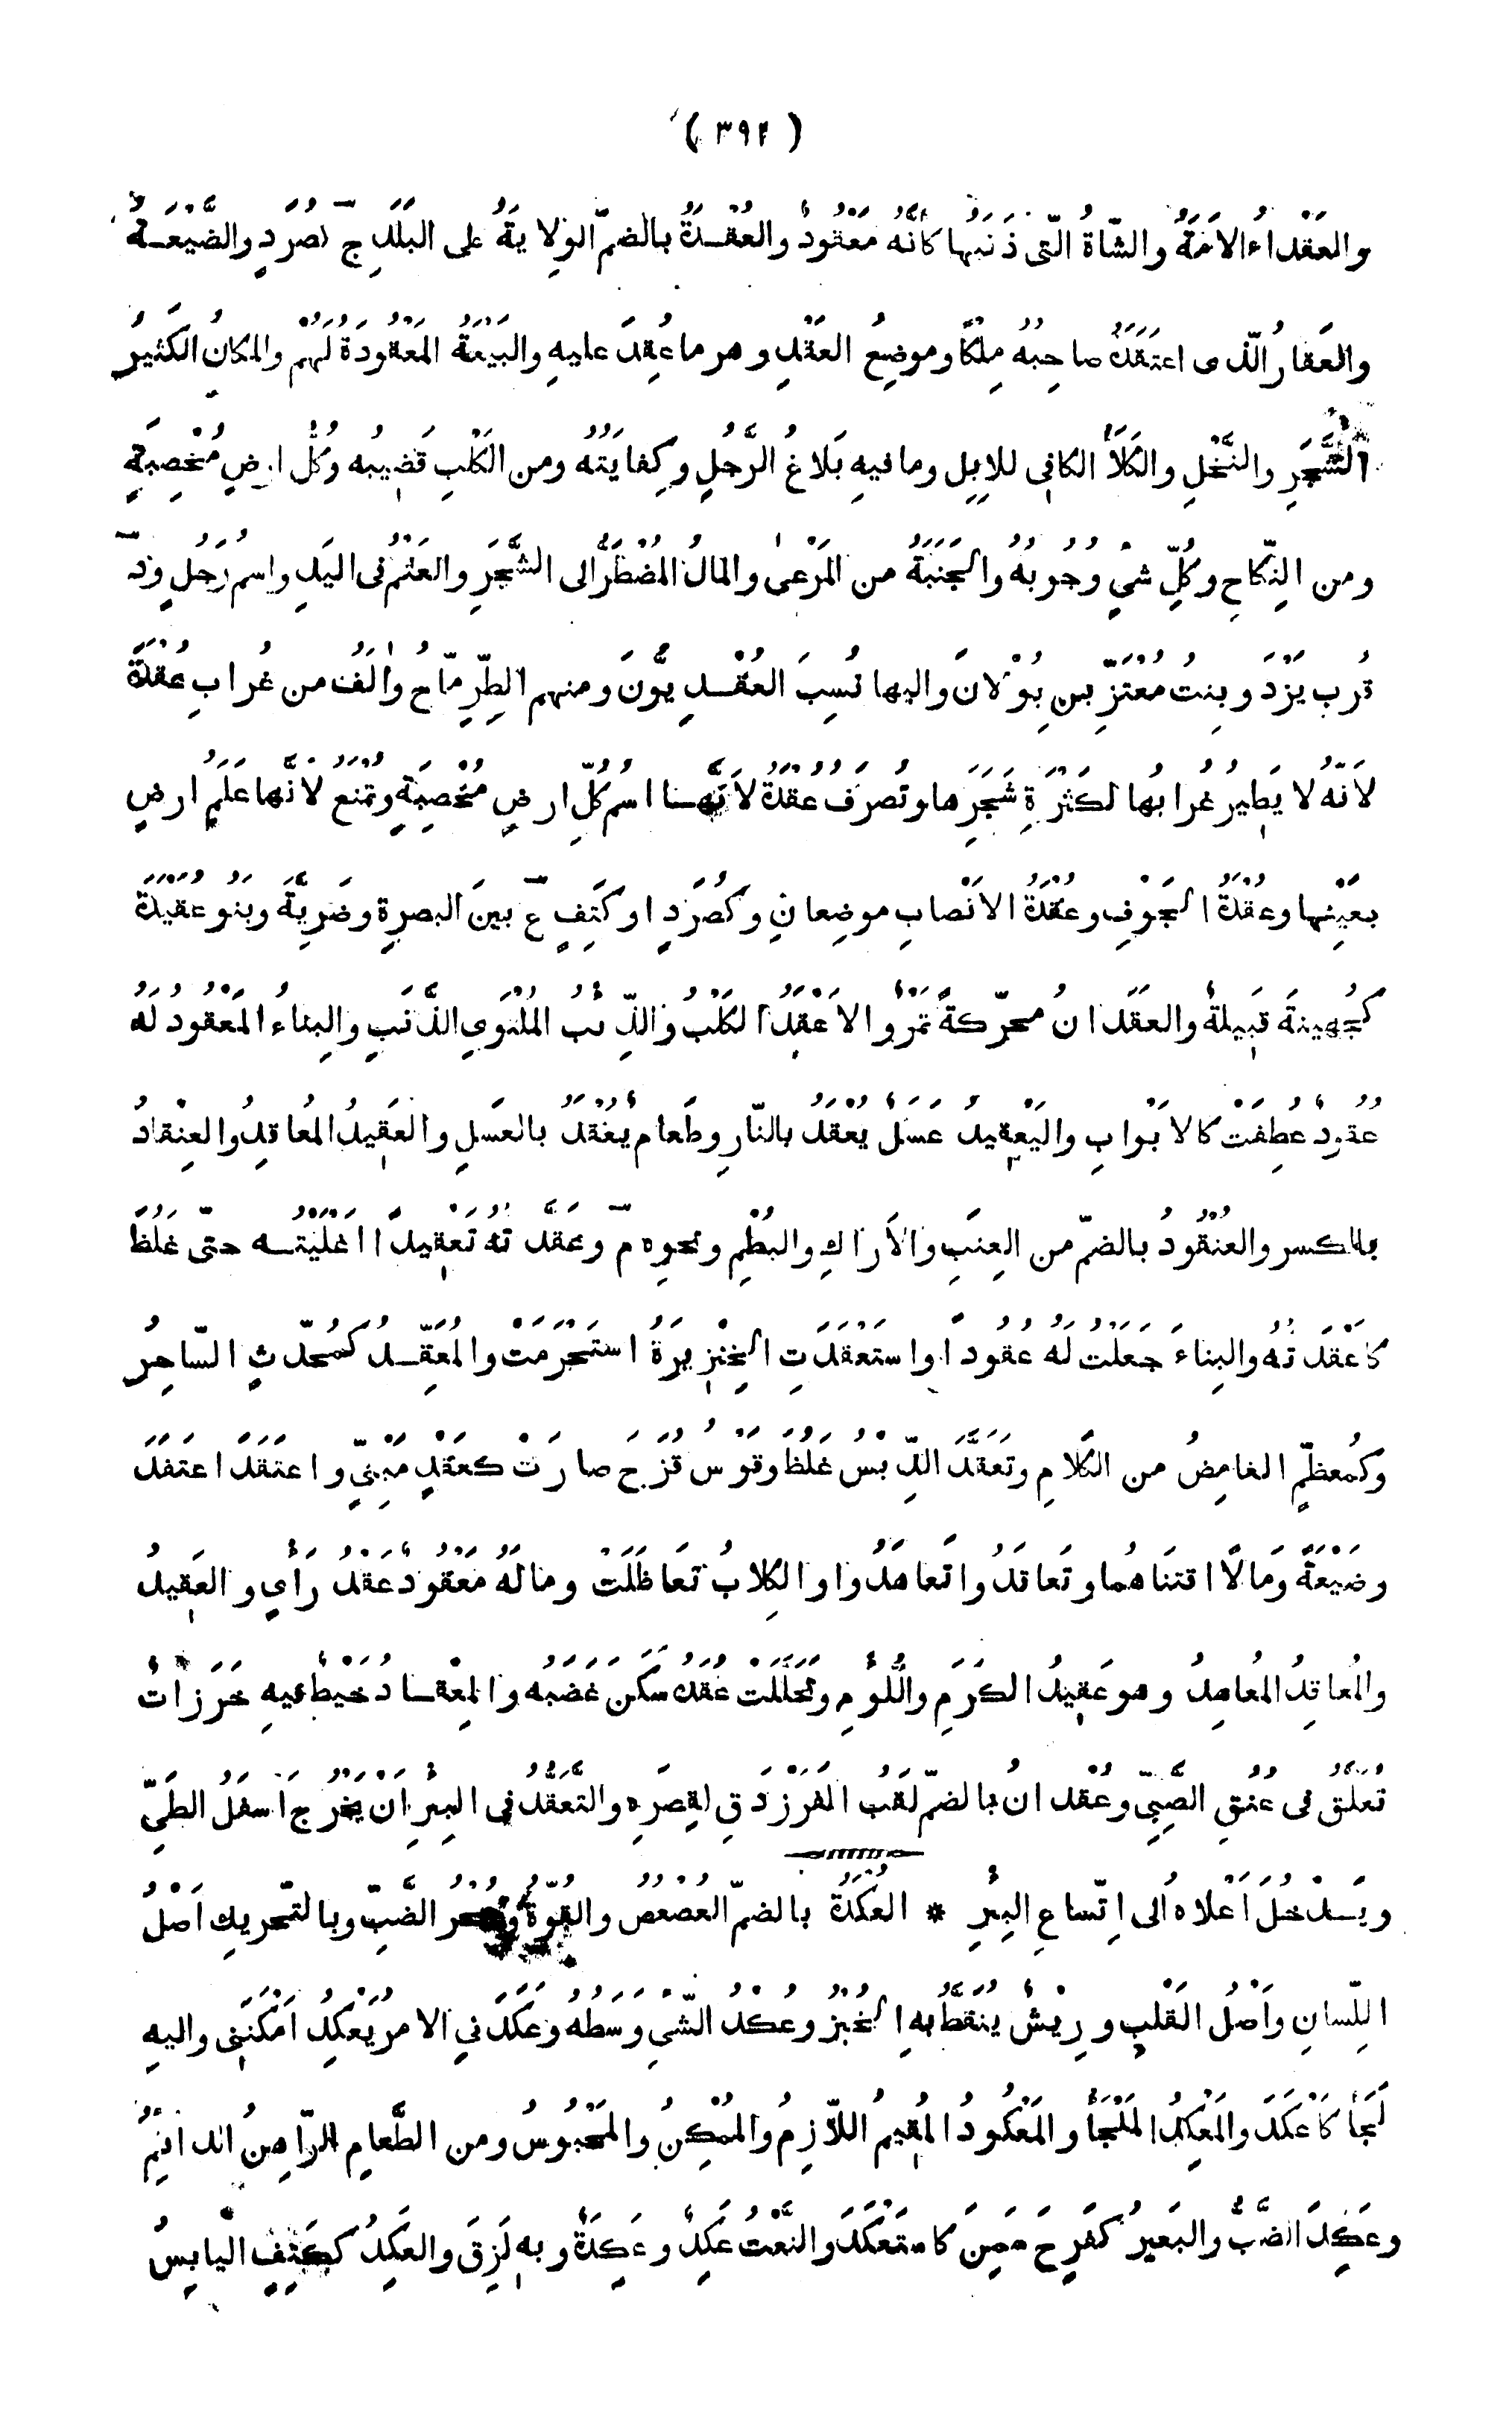 (٣٩٢)
والعَقْداءُ الاَمَةُ والشّاةُ الّتى ذَنَبُها كاَنَّهُ مَعْقودٌ والعُقْدَةُ بالضمّ الوِلايَةُ على البَلَدِ ج كصُرَدٍ والضَّيْعَةُ
والعَقارُ الّذى اعتَقَدَهُ صاحِبُهُ مِلكًا وموضِعُ العَقْدِ وهو ما عُقِدَ عليهِ والبَيْعَةُ المَعْقودَةُ لَهُمْ والمكانُ الكَثيرُ
الشَّجَرِ والنَّخْلِ والكَلَأُ الكافِى للاِبِلِ وما فيهِ بَلاغُ الرَّجُلِ وكِفايَتُهُ ومن الكَلْبِ قَضيبُه وكُلُّ ارضٍ مُخْصِبَةٍ
ومن النِّكاحِ وكُلِّ شىْءٍ وُجُوبُهُ والجَنَبَةُ من المَرْعىٰ والمالُ المُضْطَرُّ الى الشَّجَرِ والعَثْمُ فى اليَدِ واسمُ رَجُلٍ ود
قُربَ يَزْدَ وبنتُ مُعْتَزِّ بنِ بُوْلانَ واليها نُسِبَ العُقْدِيُّونَ ومنهم الطِّرِمّاحُ وآلَفُ من غُرابِ عُقْدَةَ
لاَنّهُ لا يَطيرُ غُرابُها لكَثْرَةِ شَجَرِها وتُصرَفُ عُقْدَةُ لاَنَّها اسمُ كُلِّ ارضٍ مُخْصِبَةٍ وتُمنَعُ لاَنّها عَلَمُ ارضٍ
بعَيْنِها وعُقْدَةُ الجَوْفِ وعُقْدَةُ الاَنْصابِ موضِعانِ وكصُرَدٍ او كَتِفٍ ع بينَ البصرةِ وضَرِيَّةَ وبَنو عُقَيْدَةَ
كجُهينةَ قَبيلةٌ والعَقَدانُ محرّكةً تَمْرٌ والاَعْقَدُ الكَلْبُ والذِّئْبُ المُلْتَوِى الذَّنَبِ والبِناءُ المَعْقودُ لَهُ
عُقودٌ عُطِفَتْ كالاَبْوابِ واليَعْقيدُ عَسَلٌ يُعْقَدُ بالنّارِ وطَعامٌ يُعْقَدُ بالعَسَلِ والعَقيدُ المُعاقِدُ والعِنْقادُ
بالكسر والعُنْقُودُ بالضمّ من العِنَبِ والاَراكِ والبُطْمِ ونحوِهِ م وعَقَّدتُهُ تَعْقيدًا اَغلَيْتُه حتّى غَلُظَ
كاَعْقَدتُهُ والبِناءَ جَعَلْتُ لَهُ عُقودًا واستَعْقَدَتِ الخِنْزيرَةُ استَحْرَمَتْ والمُعَقِّدُ كمُحَدِّثٍ السّاحِرُ
وكمُعظّمٍ الغامِضُ من الكَلامِ وتَعَقَّدَ الدِّبْسُ غَلُظَ وقوْسُ قُزَحَ صارَتْ كعَقْدٍ مَبْنِىٍّ واعتَقَدَ اعتَفَدَ
وضَيْعَةً ومَالًا اقتَنَاهُما وتَعاقَدُوا تَعاهَدُوا والكِلابُ تَعَاظَلَتْ وما لَهُ مَعْقودٌ عَقْدُ رَأْىٍ والعَقيدُ
والمُعاقِدُ المُعاهِدُ وهو عَقيدُ الكَرَمِ واللُّؤمِ وتَحَلَّلَتْ عُقَدُهُ سَكَنَ غَضَبُه والمِعْقادُ خَيْطٌ فيهِ خَرَزاتٌ
تُعَلَّقُ فى عُنُقِ الصَّبِىِّ وعُقْدانُ بالضمّ لَقَبُ الفَرَزْدَقِ لقِصَرِهِ والتَّعَقُّدُ فى البِئْرِ اَنْ يَخْرُجَ اَسفَلُ الطَّىِّ
ويَدخُلَ اَعْلاهُ الى اِتّساعِ البِئْرِ * العُكْدَةُ بالضمّ العُصعُص والقُوّةُ وجُحْرُ الضَّبّ وبالتّحريكِ اَصْلُ
اللِّسانِ واَصْلُ القَلْبِ ورِيْشٌ يُنقَّطُ بهِ الخُبْزُ وعُكْدُ الشّىْءِ وَسَطُهُ وعَكَدَنِى الامرُ يَعْكِدُ اَمْكَنَنِى واليهِ
لَجَأَ كَاَعْكَدَ والمَعْكِدُ المَلْجَأُ والمَعْكُودُ المُقِيمُ اللاّزِمُ والمُمْكِنُ والمَحْبُوسُ ومن الطَّعامِ الرّاهِنُ الدائِمُ
وعَكِدَ الضَبُّ والبَعيرُ كفَرِحَ سَمِنَ كاستَعْكَدَ والنَّعْتُ عَكِدٌ وعَكِدَةٌ وبهِ لَزِقَ والعَكِدُ ككَتِفٍ اليابِسُ